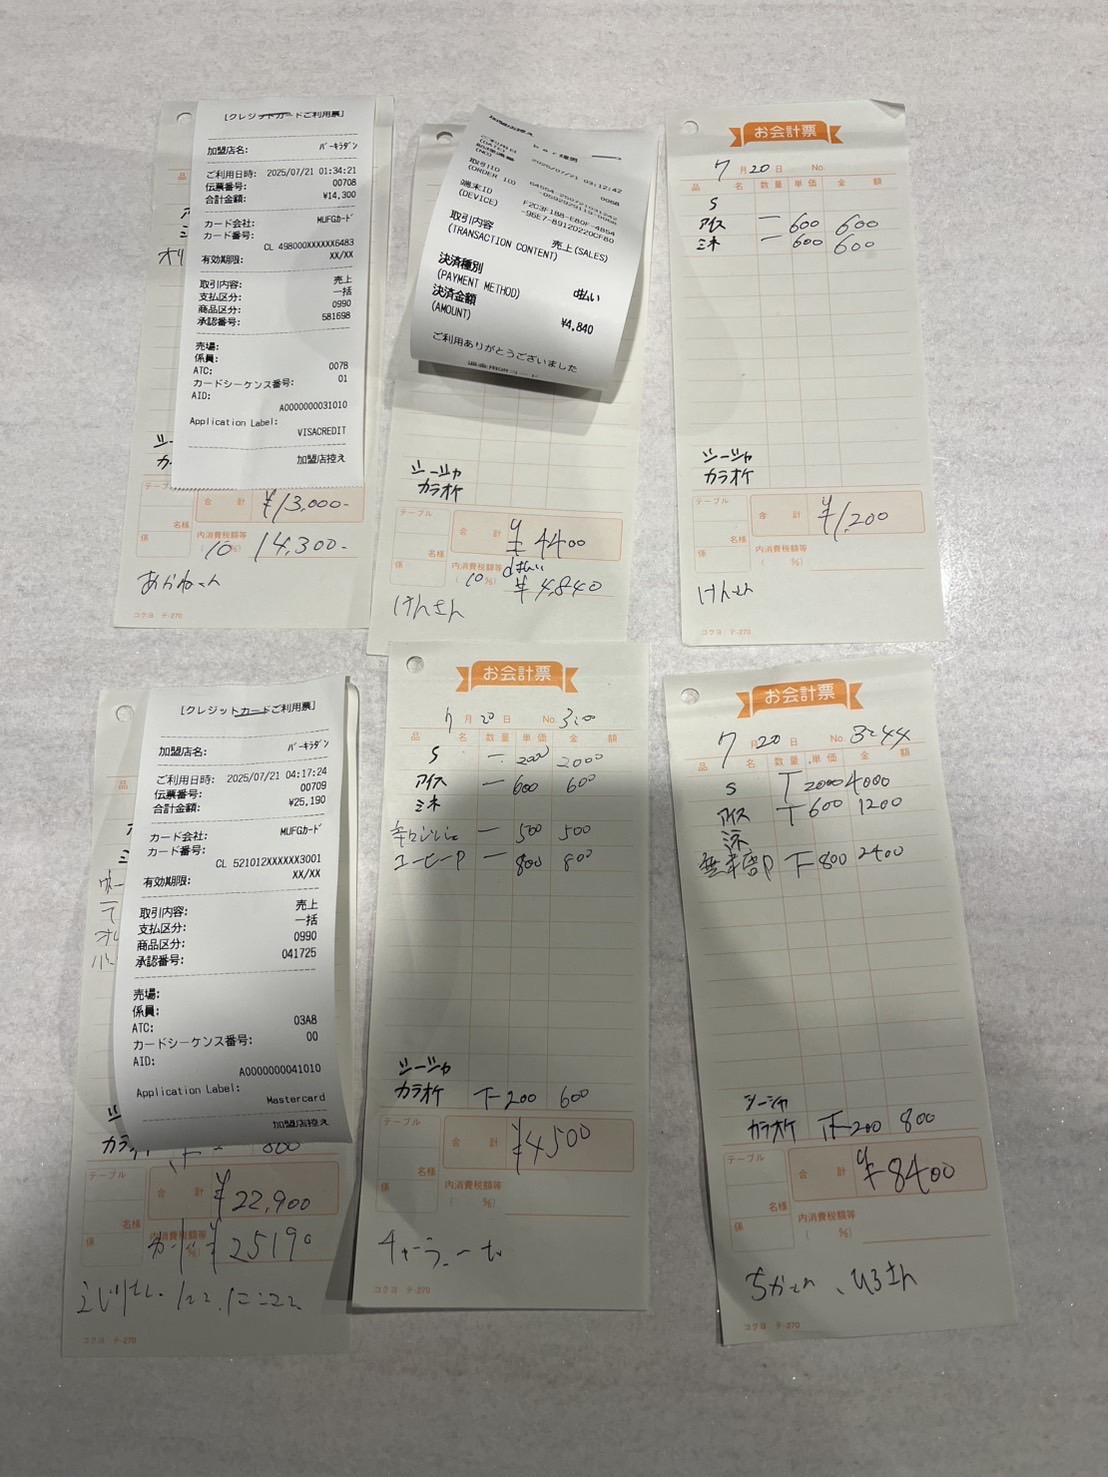 [クレジットカードご利用票]
加盟店名: バーキラダン
ご利用日時: 2025/07/21 01:34:21
伝票番号: 00708
合計金額: ¥14,300
カード会社: MUFGカード
カード番号:
CL 498000XXXXXX6483
有効期限: XX/XX
取引内容: 売上
支払区分: 一括
商品区分: 0990
承認番号: 581698
売場:
係員:
ATC: 0078
カードシーケンス番号: 01
AID:
A0000000031010
Application Label:
VISACREDIT
加盟店控え
品
テーブル
名様
係
合計 ¥13,000-
内消費税額等
(10%) 14,300-
あかねさん
コクヨ テ-270
加盟店控え
2025/07/21 03:12:42
取引ID
(ORDER ID)
端末ID
(DEVICE)
F2C3F188-E80F-4854
-96E7-89120220CF80
取引内容 売上(SALES)
(TRANSACTION CONTENT)
決済種別
(PAYMENT METHOD) d払い
決済金額
(AMOUNT) ¥4,840
ご利用ありがとうございました
シーシャ
カラオケ
テーブル
名様
係
合計 ¥4400
内消費税額等 d払い
(10%) ¥4,840
けんさん
コクヨ テ-270
お会計票
7月20日 No.
品名 数量 単価 金額
S
アイス 一 600 600
ミネ 一 600 600
シーシャ
カラオケ
テーブル
名様
係
合計 ¥1,200
内消費税額等
( %)
けんさん
コクヨ テ-270
[クレジットカードご利用票]
加盟店名: バーキラダン
ご利用日時: 2025/07/21 04:17:24
伝票番号: 00709
合計金額: ¥25,190
カード会社: MUFGカード
カード番号:
CL 521012XXXXXX3001
有効期限: XX/XX
取引内容: 売上
支払区分: 一括
商品区分: 0990
承認番号: 041725
売場:
係員:
ATC: 03A8
カードシーケンス番号: 00
AID:
A0000000041010
Application Label:
Mastercard
加盟店控え
品
800
テーブル
名様
係
合計 ¥22,900
内消費税額等
カード ¥25190
コクヨ テ-270
お会計票
7月20日 No. 3:00
品名 数量 単価 金額
S 一 2000 2000
アイス 一 600 600
ミネ
一 500 500
コーヒーP 一 800 800
シーシャ
カラオケ 下 200 600
テーブル
名様
係
合計 ¥4500
内消費税額等
( %)
コクヨ テ-270
お会計票
7月20日 No. 3:44
品名 数量 単価 金額
S T 2000 4000
アイス T 600 1200
P 下 800 2400
シーシャ
カラオケ 200 800
テーブル
名様
係
合計 ¥8400
内消費税額等
( %)
ちかさん、ひろさん
コクヨ テ-270